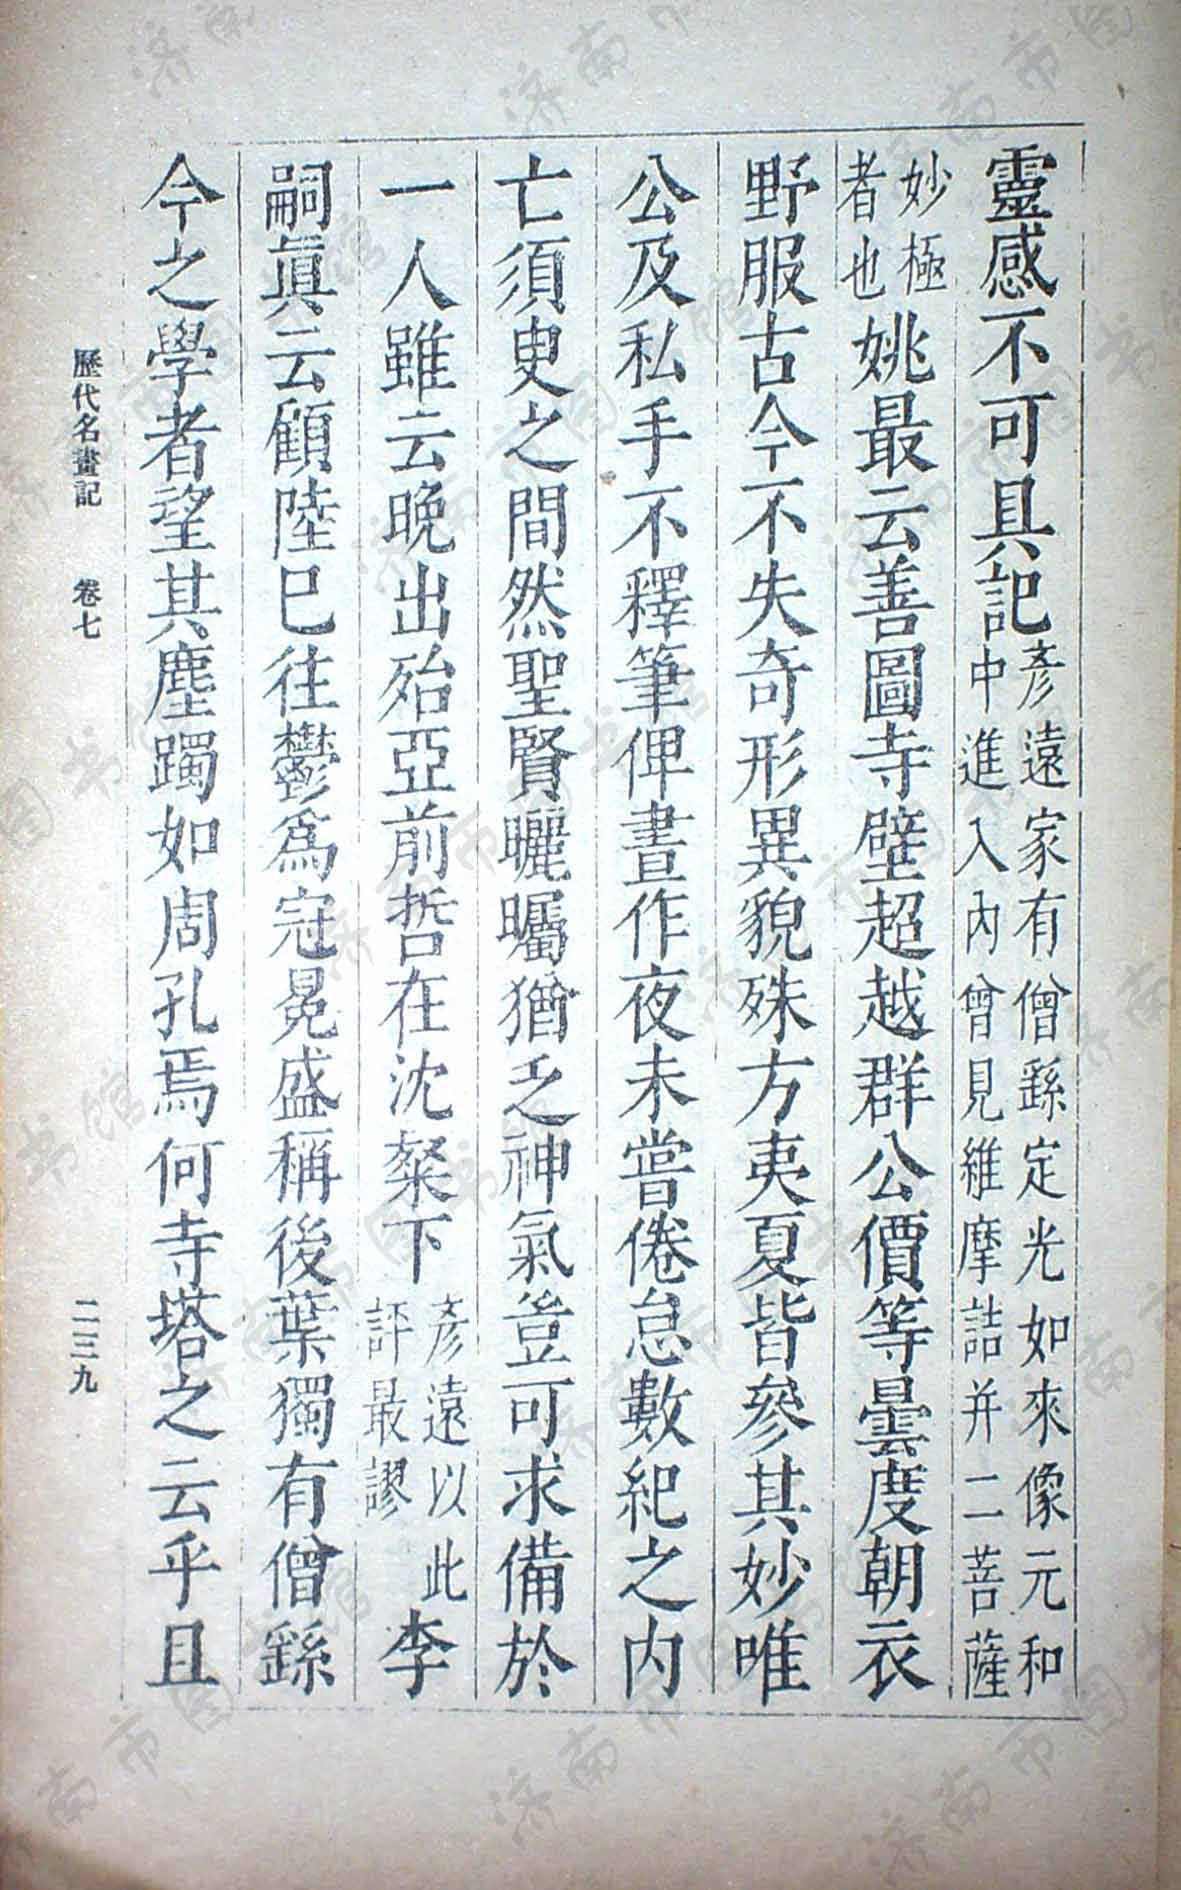 靈感不可具記彥遠家有僧繇定光如來像元和中進入內曾見維摩詰并二菩薩
妙極者也姚最云善圖寺壁超越群公價等曇度朝衣
野服古今不失奇形異貌殊方夷夏皆參其妙唯
公及私手不釋筆俾晝作夜未嘗倦怠數紀之內
亡須臾之間然聖賢曬矚猶乏神氣豈可求備於
一人雖云晚出殆亞前哲在沈粲下彥遠以此評最謬李
嗣真云顧陸已往鬱為冠冕盛稱後葉獨有僧繇
今之學者望其塵躅如周孔焉何寺塔之云乎且
歷代名畫記 卷七 二三九